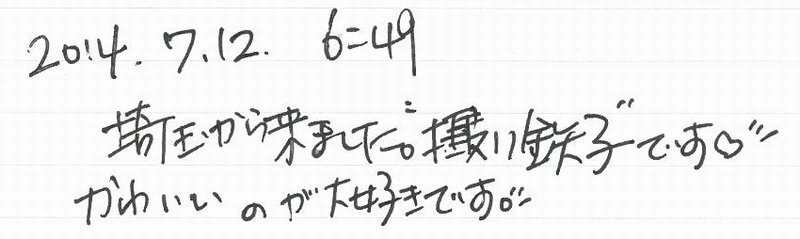 2014.7.12. 6:49
埼玉から来ました。"撮り鉄子"です♡
かわいいのが大好きです。